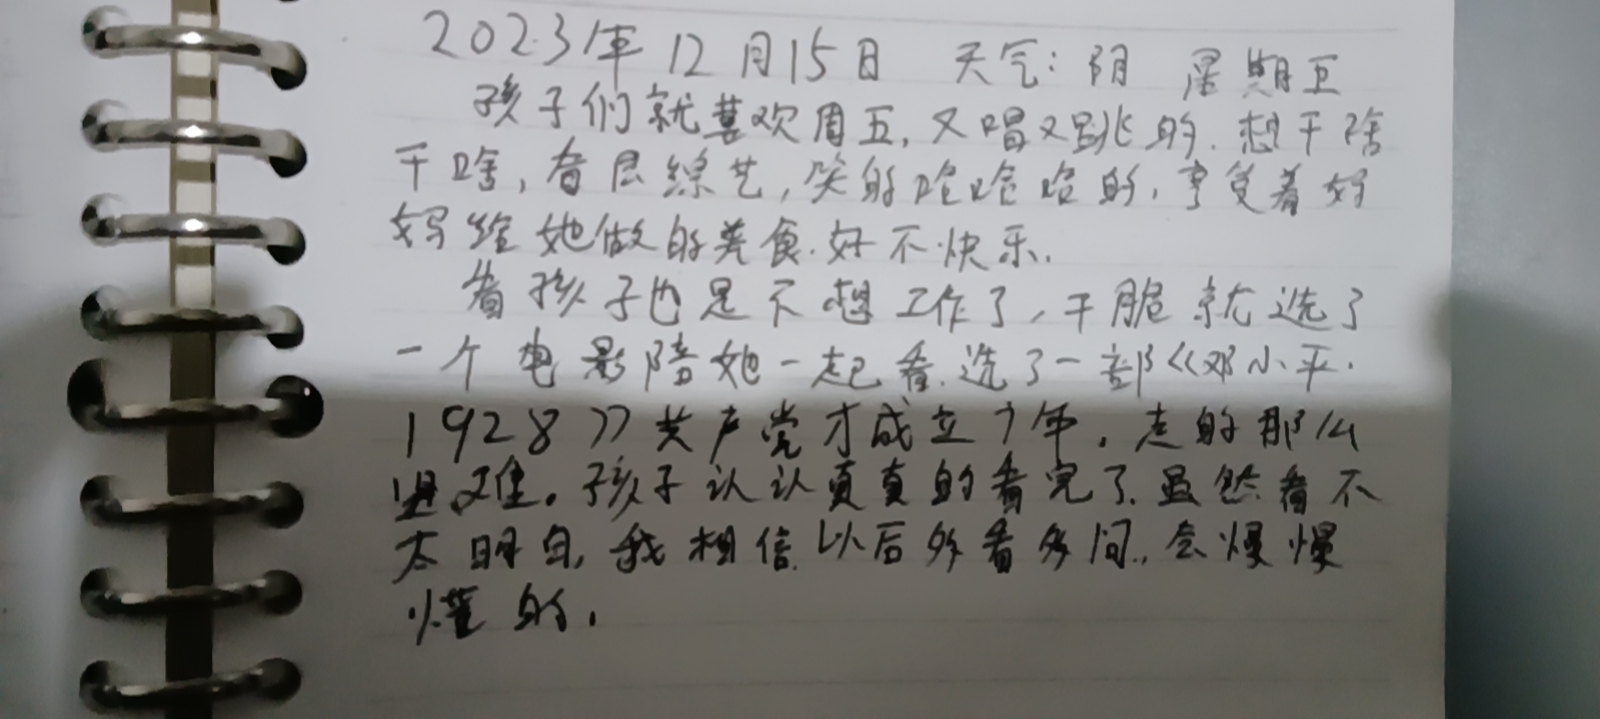 2023年12月15日 天气:阴 星期五
孩子们就喜欢周五,又唱又跳的.想干啥
干啥,看层综艺,笑的哈哈哈的,享受着妈
妈给她做的美食.好不快乐.
看孩子也是不想工作了,干脆就选了
一个电影陪她一起看.选了一部《邓小平.
1928》共产党才成立7年.走的那么
坚难。孩子认认真真的看完了.虽然看不
太明白,我相信.以后多看多问.,会慢慢
懂的.